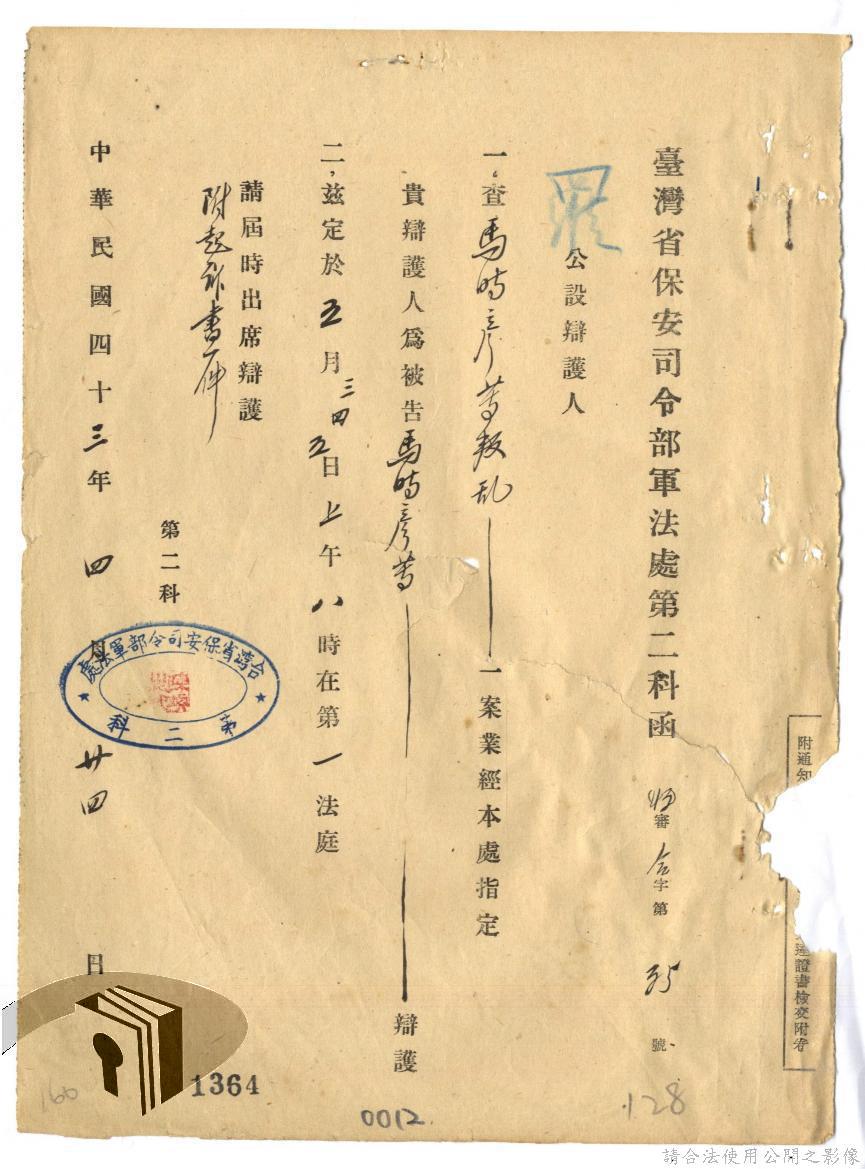 臺灣省保安司令部軍法處第二科函 審 字第 號
公設辯護人
一、查馬時彥等叛乱一案業經本處指定
貴辯護人爲被告馬時彥等辯護
二、茲定於五月三四五日上午八時在第一法庭
請屆時出席辯護
附起訴書一件
第二科
中華民國四十三年四月廿四日
台灣省保安司令部軍法處
第二科
附通知
達證書檢交附卷
1364
0012
128
160
請合法使用公開之影像